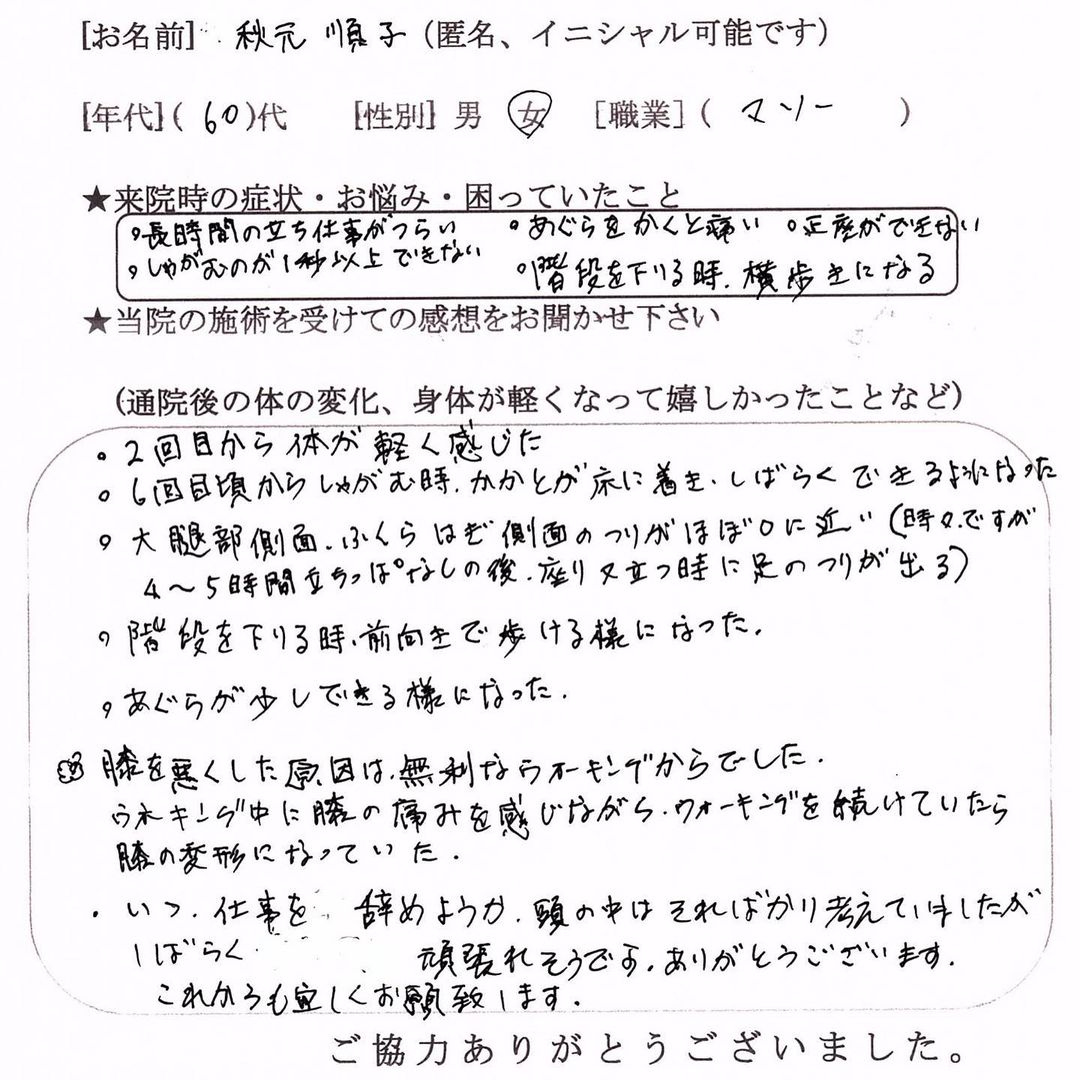 [お名前] 秋元 順子 (匿名、イニシャル可能です)
[年代] ( 60 )代 [性別] 男 女 [職業] ( マソー )
★来院時の症状・お悩み・困っていたこと
・長時間の立ち仕事がつらい ・あぐらをかくと痛い ・正座ができない
・しゃがむのが1秒以上できない ・階段を下りる時、横歩きになる
★当院の施術を受けての感想をお聞かせ下さい
(通院後の体の変化、身体が軽くなって嬉しかったことなど)
・2回目から体が軽く感じた
・6回目頃からしゃがむ時、かかとが床に着き、しばらくできるようになった
・大腿部側面、ふくらはぎ側面のつりがほぼ0に近い(時々ですが
4〜5時間立ちっぱなしの後、座り又立つ時に足のつりが出る)
・階段を下りる時、前向きで歩ける様になった。
・あぐらが少しできる様になった。
膝を悪くした原因は、無利なウォーキングからでした。
ウォーキング中に膝の痛みを感じながら、ウォーキングを続けていたら
膝の変形になっていた。
・いつ、仕事を 辞めようか、頭の中はそればかり考えていましたが
しばらく 頑張れそうです。ありがとうございます。
これからも宜しくお願致します。
ご協力ありがとうございました。